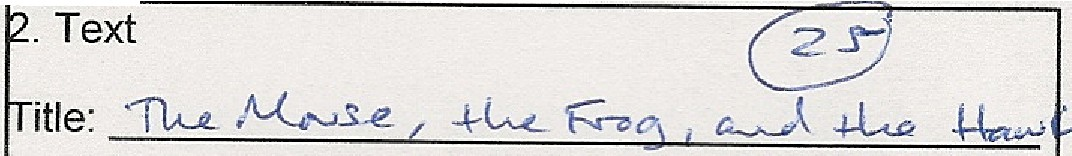 2. Text 25
Title: The Mouse, the Frog, and the Hawk